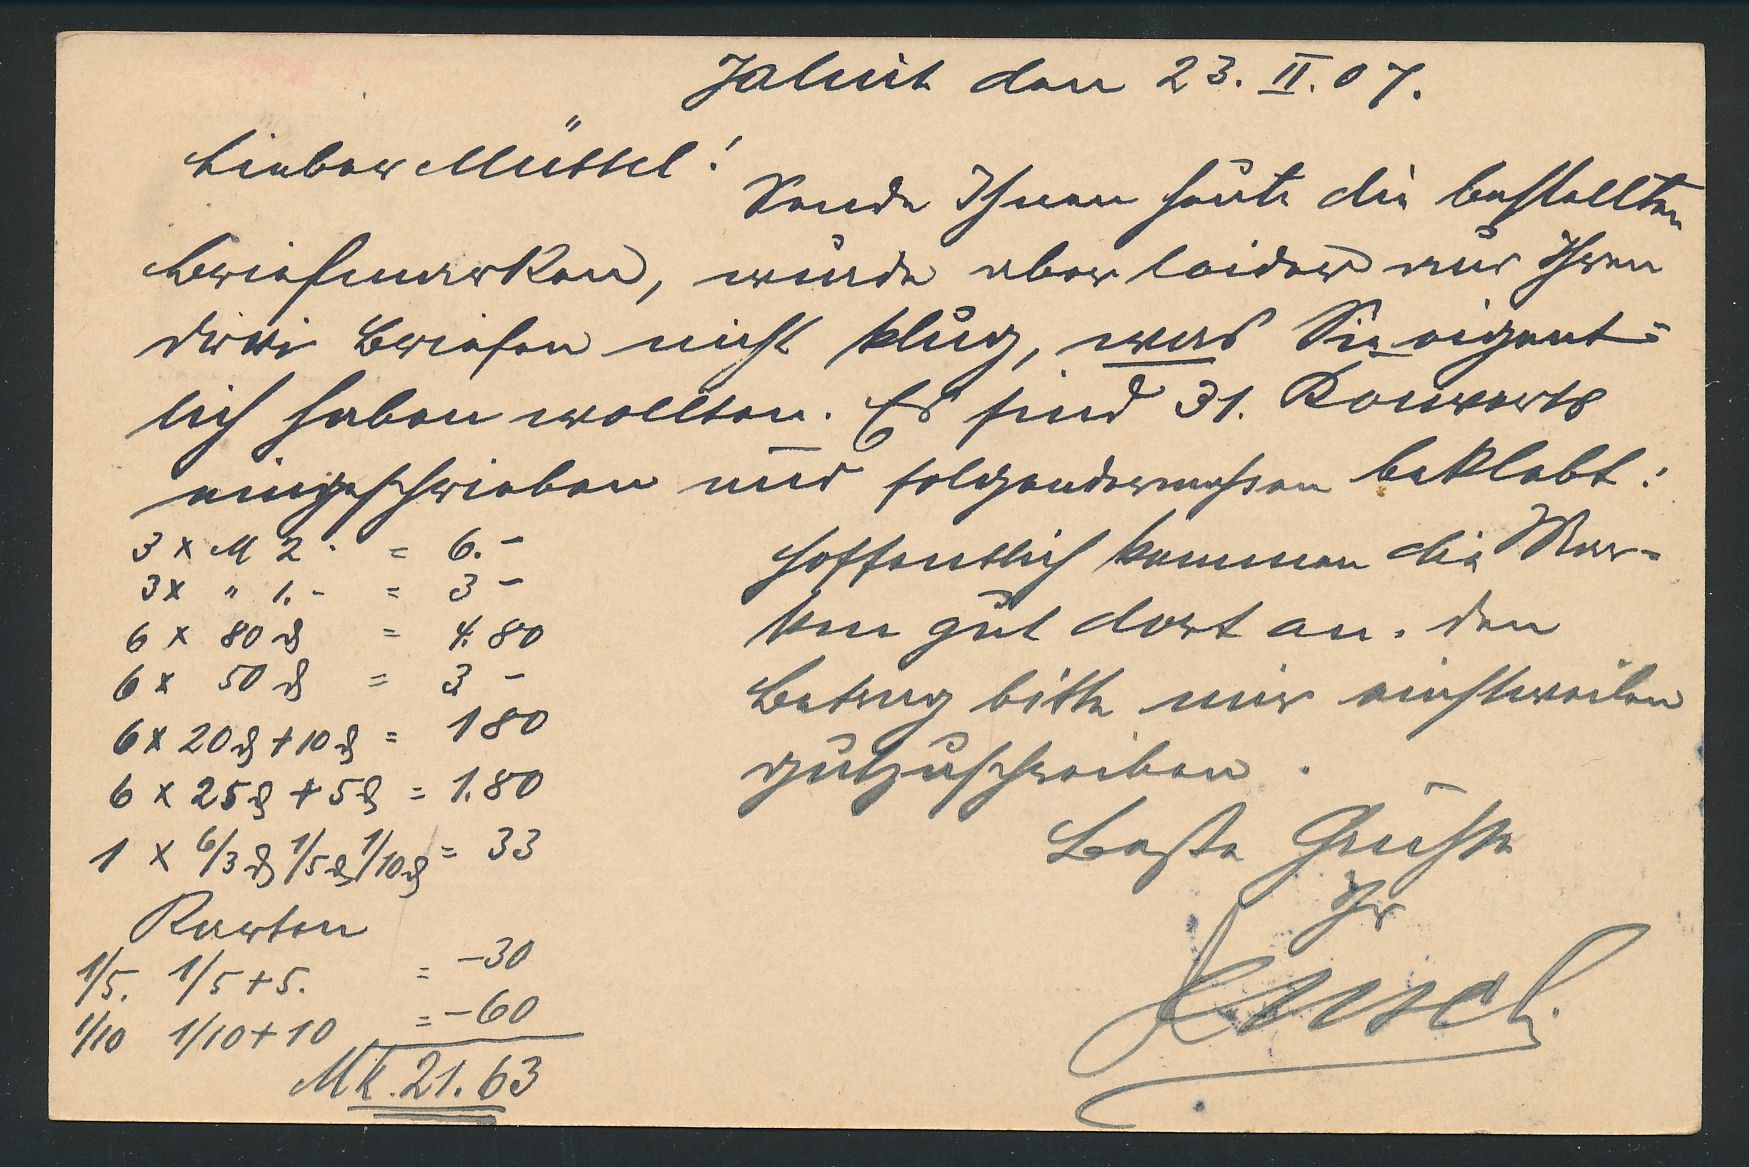 Jaluit den 23. II. 07.
Lieber Müssel!
Sende Ihnen heute die bestellten
Briefmarken, wurde aber leider aus Ihren
Briefen nicht klug, was Sie eigent-
lich haben wollten. Es sind 31. Kouverts
eingeschrieben und folgendermassen beklebt:
3 x M 2 . = 6.-
3 x " 1.- = 3 -
6 x 80 ₰ = 4.80
6 x 50 ₰ = 3 -
6 x 20 ₰ + 10 ₰ = 180
6 x 25 ₰ + 5 ₰ = 1.80
1 x 6/3 ₰ 1/5 ₰ 1/10 ₰ = 33
Karten
1/5. 1/5 + 5. = -30
1/10 1/10 + 10 = -60
Mk. 21.63
Hoffentlich kommen die Mar-
ken gut dort an. Den
Betrag bitte mir einstweilen
gutzuschreiben.
Beste Grüsse
Ihr